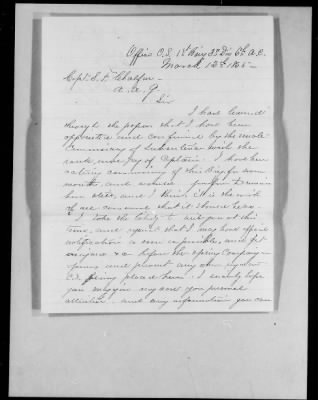 Office C.S. 1st Brig 3d Div 6th A.C.
March 12th 1865
Capt. S. F. Chalfin
A. A. G.
Sir
I have learned
through the papers that I have been
appointed and confirmed by the
Commissary of Subsistence with the
rank and pay of Captain. I have been
acting commissary of this Brig for some
months, and would prefer to remain
here still, and I think it is the wish
of all concerned that it should be so.
I take the liberty to write you at this
time, and request that I may have official
notification as soon as possible, and get
assigned &c before the Spring Campaign
opens and prevent any other
being placed here. I sincerely hope
you may give my case your personal
attention and any information you can